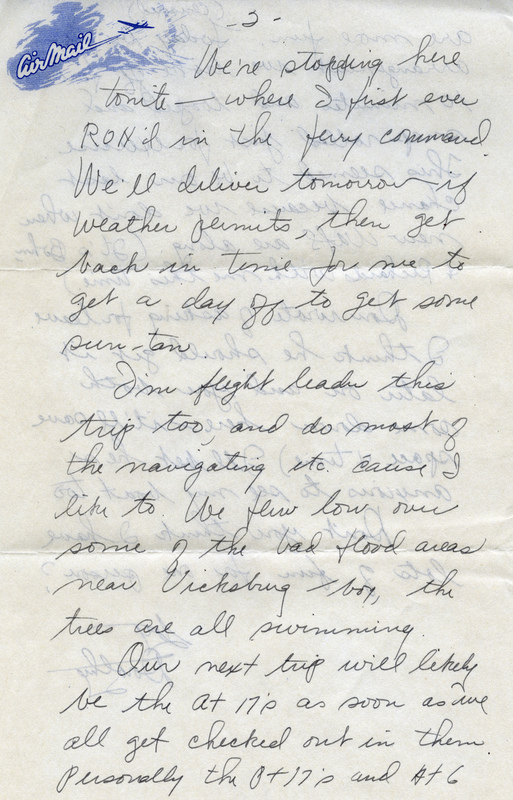 Air Mail
- 3 -
We're stopping here
tonite - where I first ever
RON'd in the ferry command.
We'll deliver tomorrow if
weather permits, then get
back in time for me to
get a day off to get some
sun-tan.
I'm flight leader this
trip too, and do most of
the navigating etc. 'cause I
like to. We flew low over
some of the bad flood areas
near Vicksburg - boy, the
trees are all swimming.
Our next trip will likely
be the AT 17's as soon as we
all get checked out in them.
Personally the PT 17's and AT 6